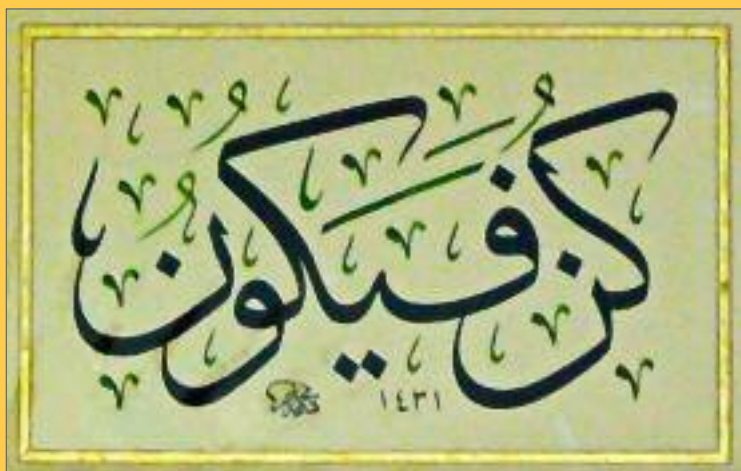 كُن فَيَكُونُ
١٤٣١